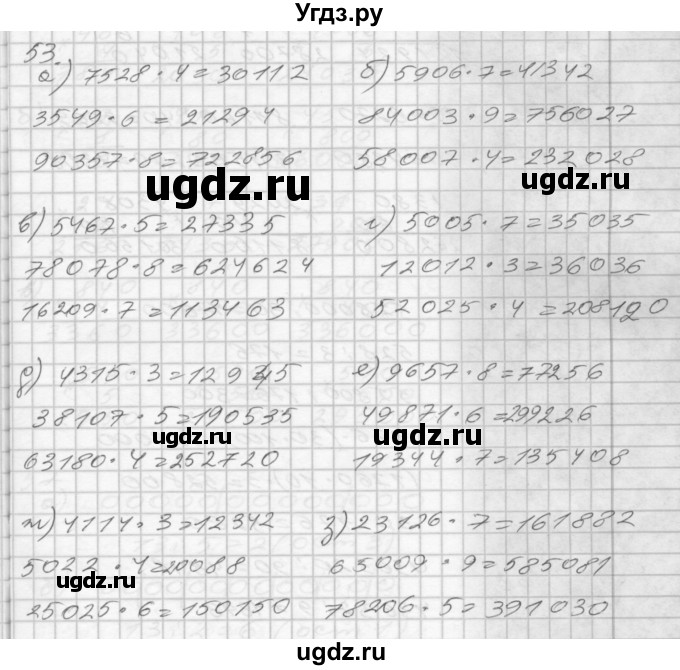 Угдз.ру
53.
а) 7528 · 4 = 30112
3549 · 6 = 21294
90357 · 8 = 722856
б) 5906 · 7 = 41342
84003 · 9 = 756027
58007 · 4 = 232028
ugdz.ru
ugdz.ru
в) 5467 · 5 = 27335
78078 · 8 = 624624
16209 · 7 = 113463
г) 5005 · 7 = 35035
12012 · 3 = 36036
52025 · 4 = 208100
ugdz.ru
д) 4315 · 3 = 12945
38107 · 5 = 190535
63180 · 4 = 252720
е) 9657 · 8 = 77256
49871 · 6 = 299226
19344 · 7 = 135408
ugdz.ru
ugdz.ru
ж) 4114 · 3 = 12342
5022 · 4 = 20088
25025 · 6 = 150150
з) 23126 · 7 = 161882
65009 · 9 = 585081
78206 · 5 = 391030
ugdz.ru
ugdz.ru
ugdz.ru